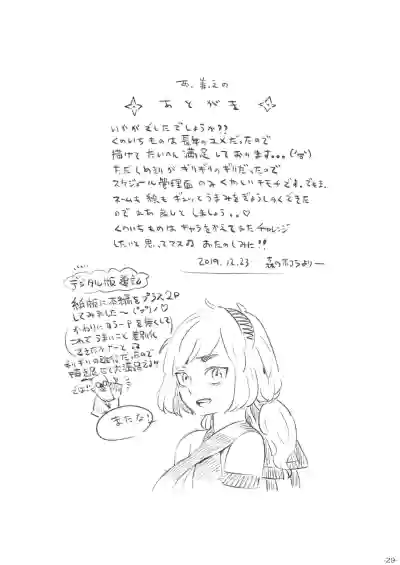 あとがき
いかがでしたでしょうか??
くのいちものは長年のユメだったので
描けてたいへん満足しております。。。
ただしめきりがギリギリのギリだったので
スケジュール管理面のみくやしいキモチです。でもま、
ネームも絵もギュッとうまみをぎょうしゅくできた
のでまあ良しとしましょう。。♡
くのいちものはキャラをかえてまたチャレンジ
したいと思ってマスのおたのしみに!!
2019.12.23 森のホコラより―
デジタル版追記
紙版に本編をプラス2P
してみました〜
かわりにヨうーPを無くして
これでうまいこと差別化
できたかナーと
ギリギリの
では!
またな!
-29-